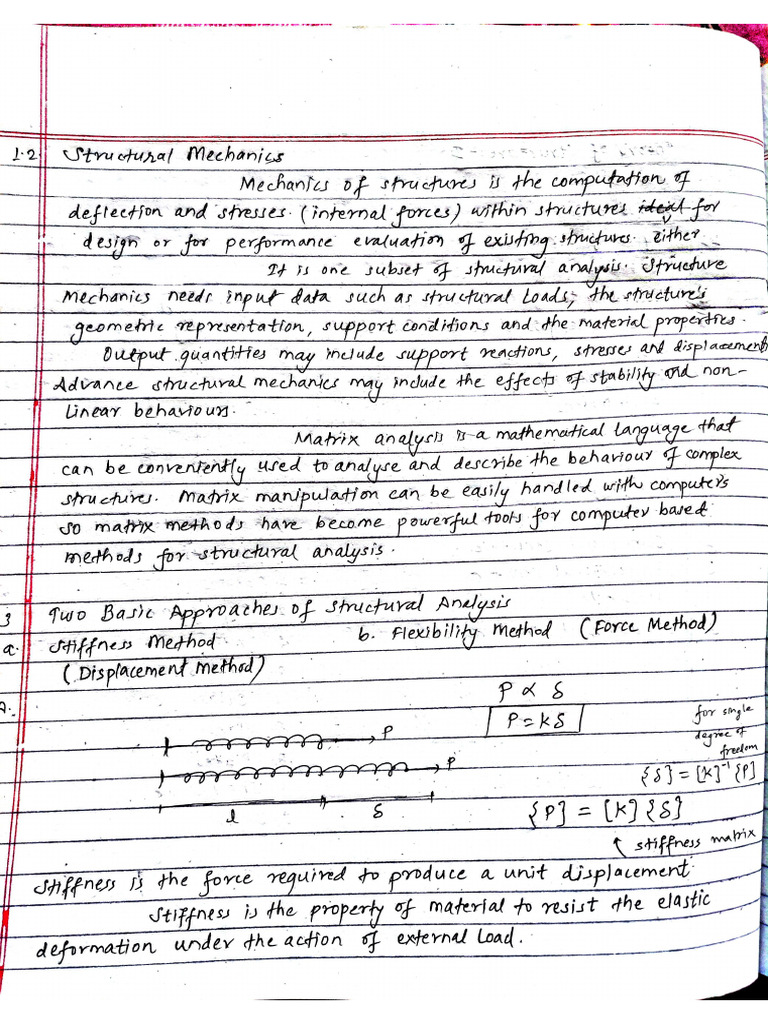 1.2 Structural Mechanics
Mechanics of structures is the computation of
deflection and stresses. (internal forces) within structures for
design or for performance evaluation of existing structures. Either
It is one subset of structural analysis. Structure
Mechanics needs input data such as structural Loads, the structure's
geometric representation, support conditions and the material properties.
Output quantities may include support reactions, stresses and displacements
Advance structural mechanics may include the effects of stability and non-
Linear behaviours.
Matrix analysis is a mathematical language that
can be conveniently used to analyse and describe the behaviour of complex
structures. Matrix manipulation can be easily handled with computers
so matrix methods have become powerful tools for computer based
methods for structural analysis.
3 Two Basic Approaches of Structural Analysis
a. Stiffness Method b. Flexibility Method (Force Method)
(Displacement Method)
P ∝ δ
P = kδ
for single
degree of
freedom
P
P
{δ} = [K]⁻¹ {P}
l δ
{P} = [K] {δ}
↑ stiffness matrix
Stiffness is the force required to produce a unit displacement.
Stiffness is the property of material to resist the elastic
deformation under the action of external Load.